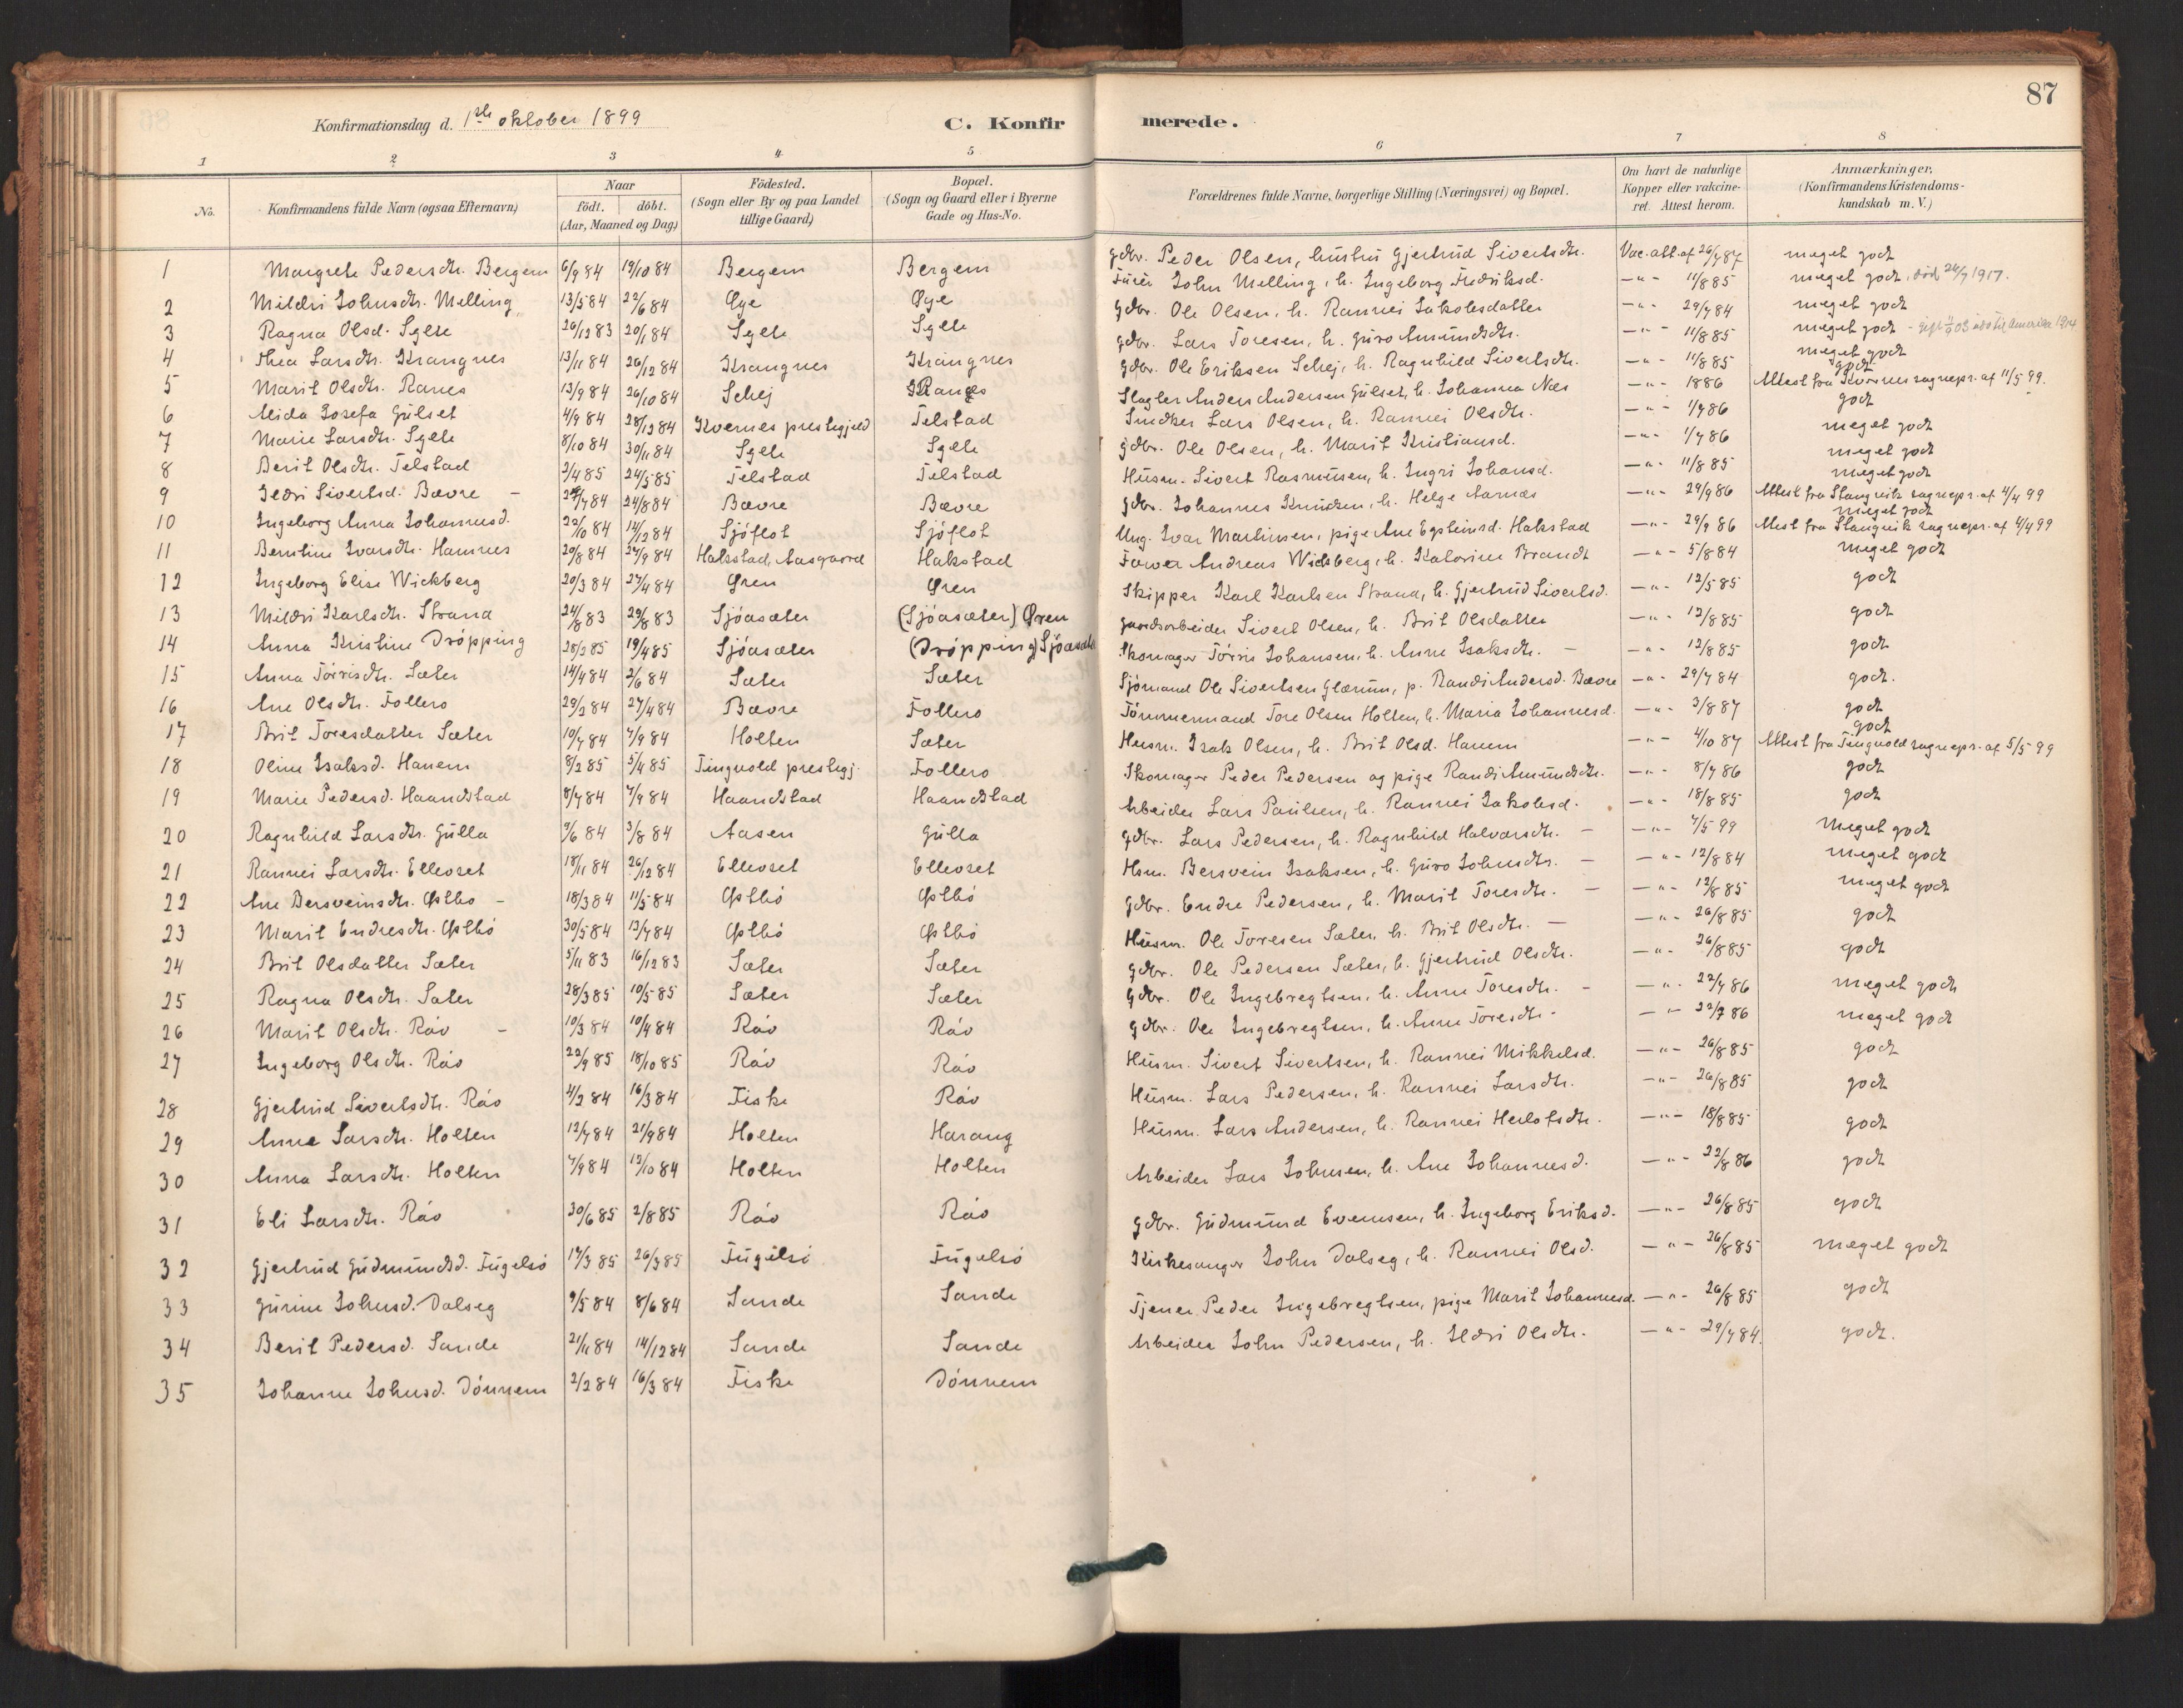 87
Konfirmationsdag d. 1ste oktober 1899
C. Konfir merede.
1 2 3 4 5 6 7 8
No. Konfirmandens fulde Navn (ogsaa Efternavn) Naar födt. döbt. (Aar, Maaned og Dag) Födested. (Sogn eller By og paa Landet tillige Gaard) Bopæl. (Sogn og Gaard eller i Byerne Gade og Hus-No. Forældrenes fulde Navne, borgerlige Stilling (Næringsvei) og Bopæl. Om havt de naturlige Kopper eller vakcineret. Attest herom. Anmærkninger. (Konfirmandens Kristendomskundskab m. V.)
1 Margrete Pedersdtr. Bergem 6/9 84 19/10 84 Bergem Bergem Gdbr. Peder Olsen, hustru Gjertrud Sivertsdtr. Vac. att. af 26/7 87 meget godt
2 Mildri Johnsdtr. Melling 13/5 84 22/6 84 Øye Øye John Melling, h. Ingeborg Fredriksd. —"- 11/8 85 meget godt, död 24/7 1917.
3 Ragna Olsd. Sgele 26/12 83 20/1 84 Sgele Sgele Gdbr. Ole Olsen, h. Rannei Jakobsdatter —"- 29/7 84 meget godt
4 Thea Larsdtr. Krangnes 13/11 84 26/12 84 Krangnes Krangnes Gdbr. Lars Toresen, h. Guro Amundsdtr. —"- 11/8 85 meget godt - gift 03 til Amerika 1914
5 Marit Olsdtr. Ranes 13/9 84 26/10 84 Schej Ranes Gdbr. Ole Eriksen Schej, h. Ragnhild Sivertsdtr. —"- 11/8 85 meget godt
6 Alida Josefa Gulset 4/9 84 28/12 84 Kvernes prestegjeld Telstad Slagter Anders Andersen Gulset, h. Johanna Næs —"- 1886 godt Attest fra Kvernes sognepr. af 11/5 99.
7 Marie Larsdtr. Sgele 8/10 84 30/11 84 Sgele Sgele Snedker Lars Olsen, h. Rannei Olsdtr. —"- 1/7 86 godt
8 Berit Olsdtr. Telstad 2/4 85 24/5 85 Telstad Telstad Gdbr. Ole Olsen, h. Marit Kristiansd. —"- 1/7 86 meget godt
9 Ildri Sivertsd. Bævre - 24/7 84 24/8 84 Bævre Bævre Husm. Sivert Rasmusen, h. Ingri Johansd. —"- 11/8 85 meget godt
10 Ingeborg Anna Johannesd. 22/10 84 14/12 84 Sjöflot Sjöflot Gdbr. Johannes Knudsen, h. Helge Aarnes —"- 29/9 86 meget godt Attest fra Stangvik sognepr. af 4/4 99
11 Berntine Ivarsdtr. Hamnes 20/8 84 24/9 84 Hakstad, Aasgaard Hakstad Ung. Ivar Martinsen, pige Ane Eysteinsd. Hakstad —"- 29/9 86 meget godt Attest fra Stangvik sognepr. af 4/4 99
12 Ingeborg Elise Wickberg 20/3 84 27/4 84 Øren Øren Farver Andreas Wickberg, h. Katarine Brandt —"- 5/8 84 meget godt
13 Mildri Karlsdtr. Strand 24/8 83 29/8 83 Sjöasæter (Sjöasæter) Øren Skipper Karl Karlsen Strand, h. Gjertrud Sivertsd. —"- 12/5 85 godt
14 Anna Kristine Dröpping 28/2 85 19/4 85 Sjöasæter (Dröpping) Sjöasæte Sivert Olsen, h. Brit Olsdatter —"- 12/8 85 godt
15 Anna Törrisdtr. Sæter 14/4 84 2/6 84 Sæter Sæter Skomager Törris Johansen, h. Anne Isaksdtr. - —"- 12/8 85 godt
16 Ane Olsdtr. Follerö 29/2 84 27/4 84 Bævre Follerö Sjömand Ole Sivertsen Glærum, p. Randi Andersd. Bævre —"- 29/7 84 godt.
17 Brit Toresdatter Sæter 10/7 84 7/9 84 Holten Sæter Tömmermand Tore Olsen Holten, h. Maria Johannesd. —"- 3/8 87 godt
18 Oline Isaksd. Hanem 8/2 85 5/4 85 Tingvold prestegj. Follerö Husm. Isak Olsen, h. Brit Olsd. Hanem —"- 4/10 87 godt Attest fra Tingvold sognepr. af 5/5 99
19 Marie Pedersd. Haandstad 8/7 84 7/9 84 Haandstad Haandstad Skomager Peder Pedersen og pige Randi Amundsdtr. —"- 8/7 86 godt
20 Ragnhild Larsdtr. Gulla 9/6 84 3/8 84 Aasen Gulla Arbeider Lars Paulsen, h. Rannei Jakobsd. —"- 18/8 85 godt
21 Rannei Larsdtr. Ellevset 18/11 84 26/12 84 Ellevset Ellevset Gdbr. Lars Pedersen, h. Ragnhild Halvarsdtr. - —"- 7/5 99 meget godt
22 Ane Bersveinsdtr. Østbö - 18/3 84 11/5 84 Østbö Østbö Hsm. Bersvein Isaksen, h. Guro Johnsdtr. - —"- 12/8 84 meget godt
23 Marit Endresdtr. Østbö 30/5 84 13/7 84 Østbö Østbö Gdbr. Endre Pedersen, h. Marit Toresdtr. - —"- 12/8 85 meget godt
24 Brit Olsdatter Sæter 5/11 83 16/12 83 Sæter Sæter Husm. Ole Toresen Sæter, h. Brit Olsdtr. - —"- 26/8 85 godt
25 Ragna Olsdtr. Sæter 28/3 85 10/5 85 Sæter Sæter Gdbr. Ole Pedersen Sæter, h. Gjertrud Olsdtr. —"- 26/8 85 godt
26 Marit Olsdtr. Röv - 10/3 84 10/4 84 Röv Röv Gdbr. Ole Ingebregtsen, h. Anne Toresdtr. - —"- 22/7 86 meget godt
27 Ingeborg Olsdtr. Röv 22/9 85 18/10 85 Röv Röv Gdbr. Ole Ingebregtsen, h. Anne Toresdtr. —"- 22/7 86 meget godt
28 Gjertrud Sivertsdtr. Röv 4/2 84 16/3 84 Fiske Röv Husm. Sivert Sivertsen, h. Rannei Mikkelsd. —"- 26/8 85 godt
29 Anne Larsdtr. Holten 12/7 84 21/9 84 Holten Harang Husm. Lars Pedersen, h. Rannei Larsdtr. —"- 26/8 85 godt
30 Anna Larsdtr. Holten 7/9 84 12/10 84 Holten Holten Husm. Lars Andersen, h. Rannei Herlofsdtr. —"- 18/8 85 godt
31 Eli Larsdtr. Röv 30/6 85 2/8 85 Röv Röv Arbeider Lars Johnsen, h. Ane Johannesd. —"- 22/8 86 godt
32 Gjertrud Gudmundsd. Fugelsö 17/3 85 26/3 85 Fugelsö Fugelsö Gdbr. Gudmund Evensen, h. Ingeborg Eriksd. —"- 26/8 85 godt
33 Gurine Johnsd. Dalseg 9/5 84 8/6 84 Sande Sande Kirkesanger John Dalseg, h. Rannei Olsd. —"- 26/8 85 meget godt
34 Berit Pedersd. Sande 21/11 84 14/12 84 Sande Sande Tjener Peder Ingebregtsen, pige Marit Johannesd. —"- 26/8 85 godt
35 Johanne Johnsd. Dönnem 2/2 84 16/3 84 Fiske Dönnem Arbeider John Pedersen, h. Ildri Olsdtr. —"- 29/7 84. godt.